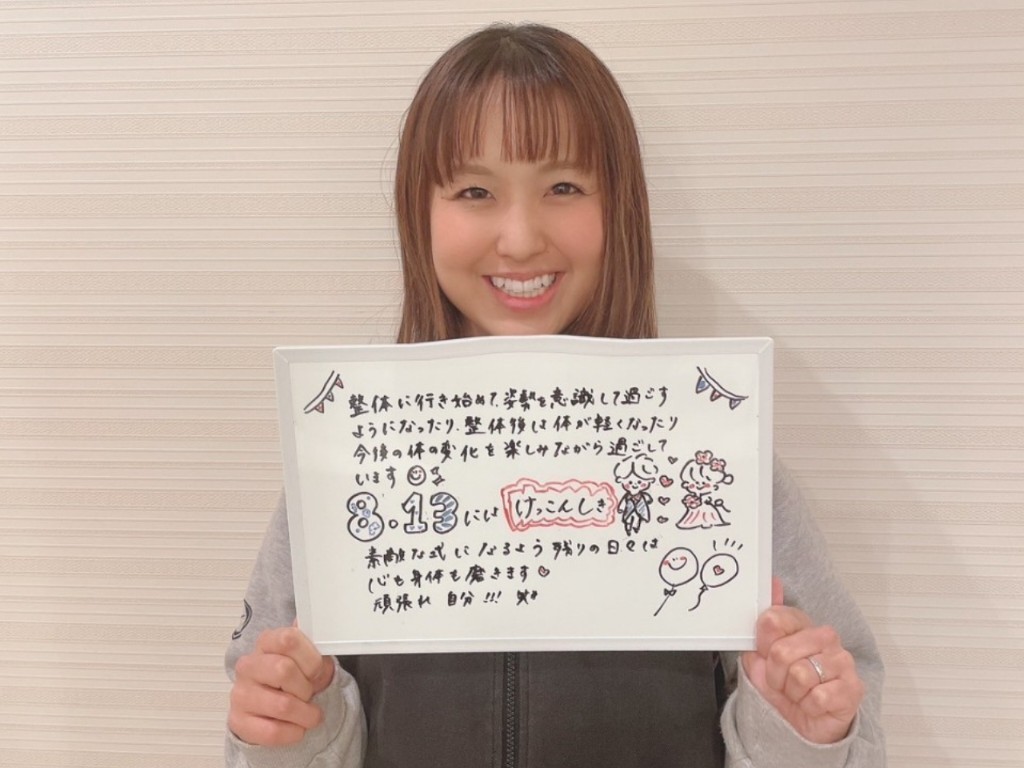 整体に行き始めて、姿勢を意識して過ごす
ようになったり、整体後は体が軽くなったり
今後の体の変化を楽しみながら過ごして
います
8.13には けっこんしき
素敵な式になるよう残りの日々は
心も身体も磨きます
頑張れ 自分!!! 笑